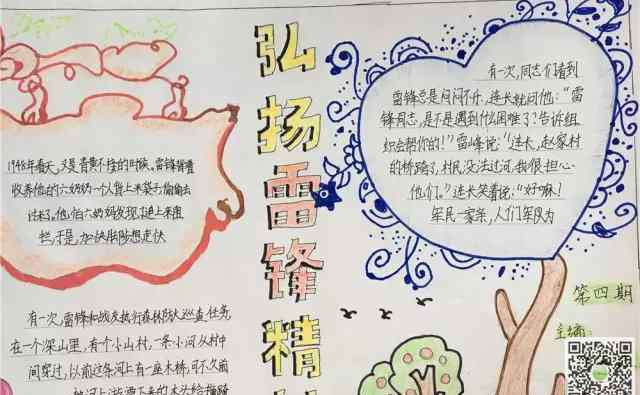 弘扬雷锋精
有一次,同志们看到
雷锋总是闷闷不乐,连长就问他:“雷
锋同志,是不是遇到什么困难了?告诉组
织会帮你的!”雷峰说:“连长,赵家村
的桥踏了,村民没法过河,我很担心
他们。”连长笑着说:“好嘛!
军民一家亲,人们军队为
1948年春天,又是青黄不接的时候。雷锋背着
收养他的六奶奶一个人背上米袋子偷偷去
过村了。他怕六奶奶发现,
于是,加快脚步想走快
有一次,雷锋和战友执行森林防火巡查任务,
在一个深山里,有个小山村,一条小河从村中
间穿过,以前这条河上有一座木桥,可不久前
第四期
主编: